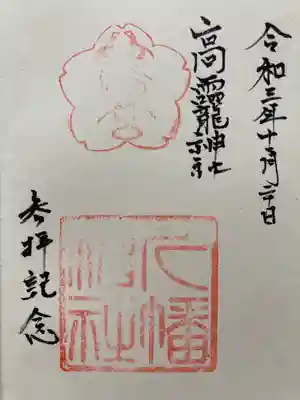 令和三年十二月二十日
高龗神社
八幡神社
参拝記念